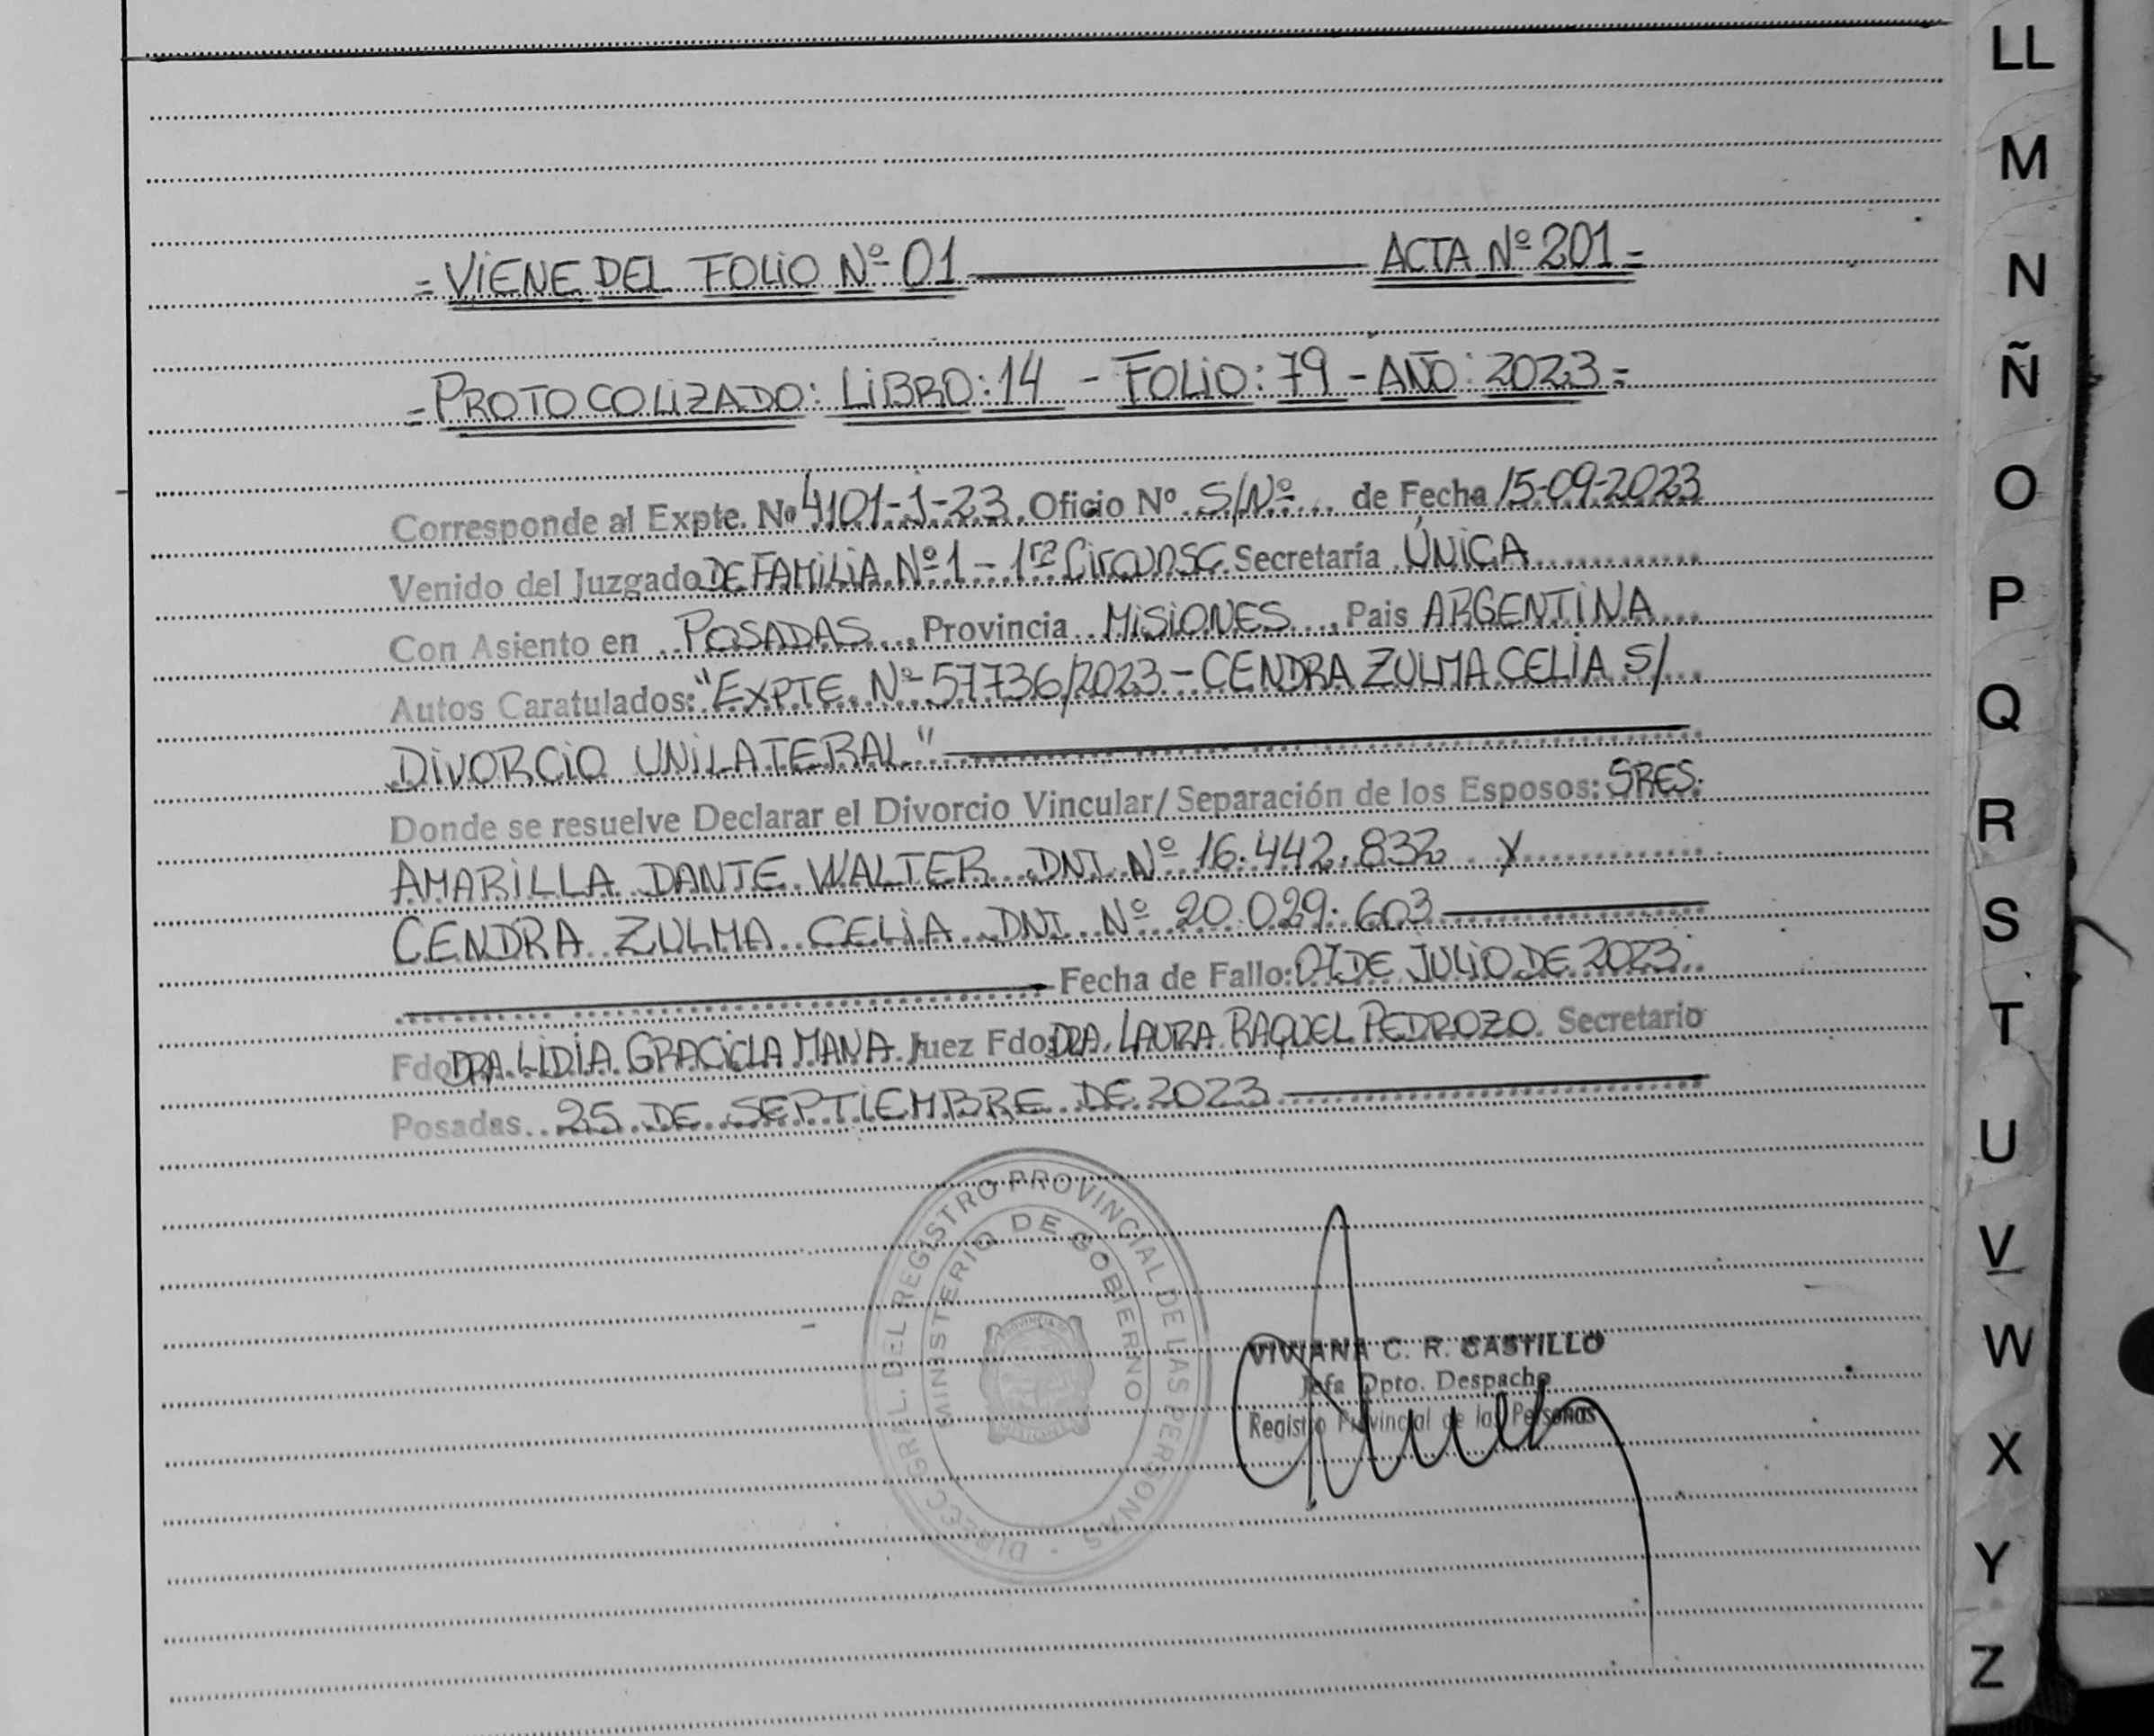 = VIENE DEL FOLIO Nº 01 ACTA Nº 201 =
= PROTOCOLIZADO: LIBRO: 14 - FOLIO: 79 - AÑO: 2023 =
Corresponde al Expte. Nº 4101-J-23. Oficio Nº S/Nº de Fecha 15-09-2023
Venido del Juzgado DE FAMILIA Nº 1 - 1ra CircunSC. Secretaría ÚNICA
Con Asiento en POSADAS, Provincia MISIONES, Pais ARGENTINA
Autos Caratulados: "EXPTE. Nº 57736/2023 - CENDRA ZULMA CELIA S/
DIVORCIO UNILATERAL"
Donde se resuelve Declarar el Divorcio Vincular/ Separación de los Esposos: SRES.
AMARILLA DANTE WALTER DNI Nº 16.442.832 y
CENDRA ZULMA CELIA DNI Nº 20.029.603
Fecha de Fallo: 07 DE JULIO DE 2023
Fdo DRA. LIDIA GRACIELA MANA. Juez Fdo DRA. LAURA RAQUEL PEDROZO. Secretario
Posadas 25 DE SEPTIEMBRE DE 2023
DIRECC. GRAL. DEL REGISTRO PROVINCIAL DE LAS PERSONAS
MINISTERIO DE GOBIERNO
VIVIANA C. R. CASTILLO
Jefa Dpto. Despacho
Registro Provincial de las Personas
LL
M
N
Ñ
O
P
Q
R
S
T
U
V
W
X
Y
Z